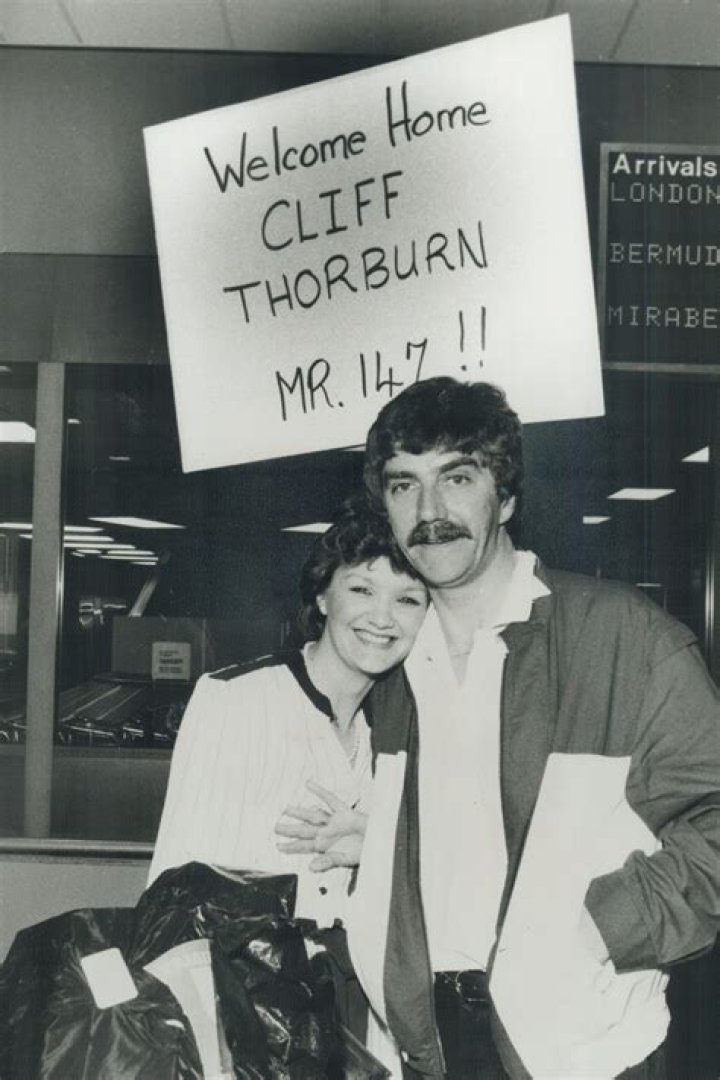 Welcome Home
CLIFF
THORBURN
MR. 147 !!
Arrivals
LONDON
BERMUD
MIRABE